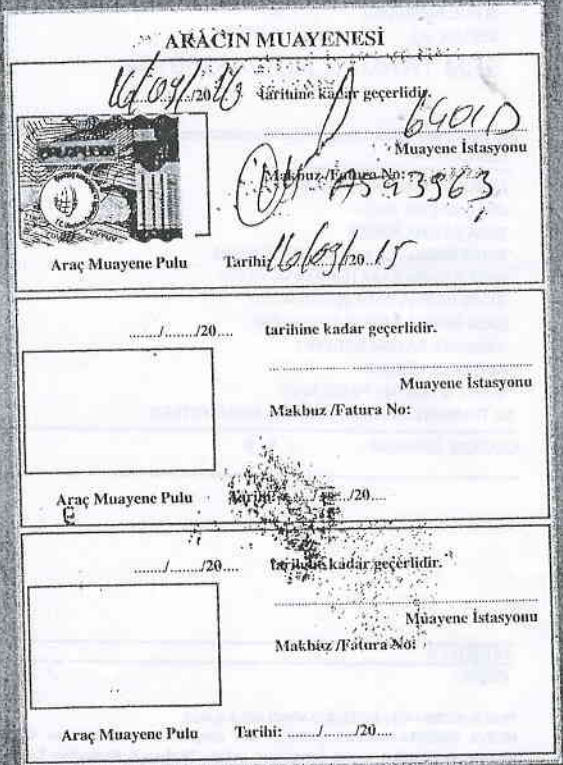 ARACIN MUAYENESİ
16/09/20 tarihine kadar geçerlidir.
Muayene İstasyonu
Makbuz /Fatura No:
Araç Muayene Pulu Tarihi: 16/09/20 15
......../......../20.... tarihine kadar geçerlidir.
Muayene İstasyonu
Makbuz /Fatura No:
Araç Muayene Pulu Tarihi: ......../......../20....
......../......../20.... tarihine kadar geçerlidir.
Muayene İstasyonu
Makbuz /Fatura No:
Araç Muayene Pulu Tarihi: ......../......../20....